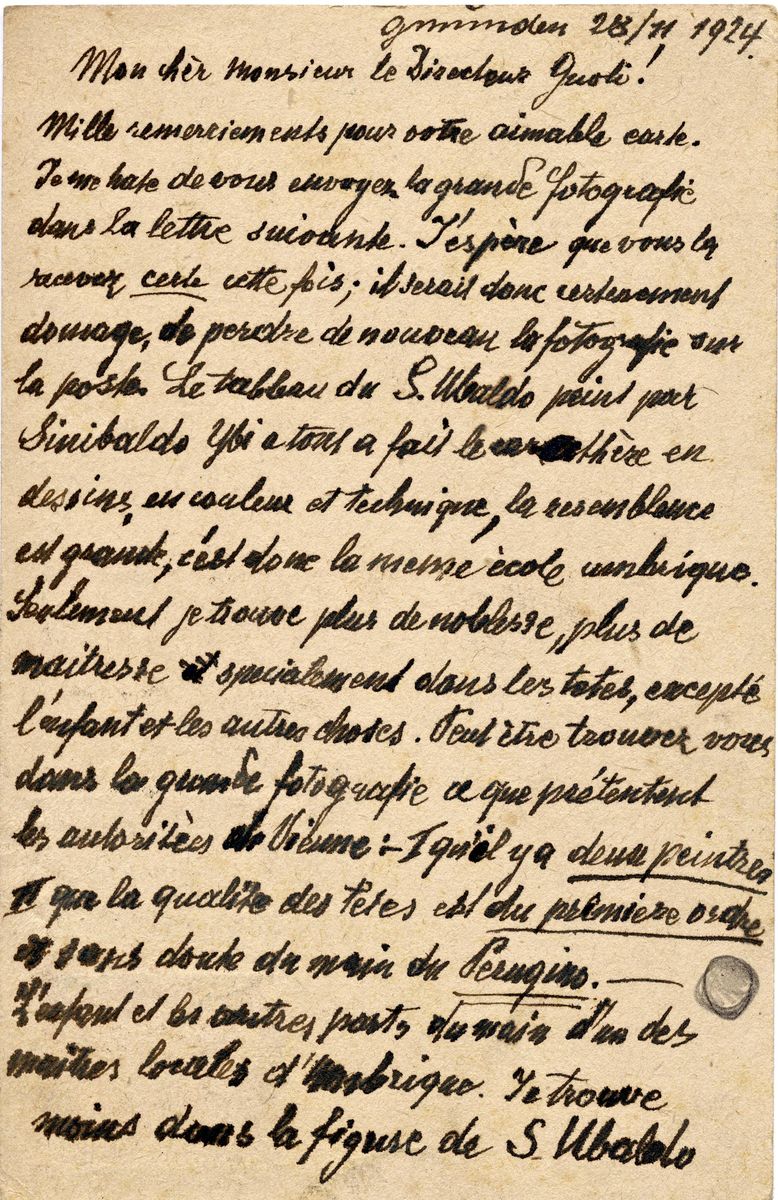 Gmünden 28/11 1924.
Mon chèr monsieur le Directeur Gnoli!
Mille remerciements pour votre aimable carte.
Je me hate de vous envoyer la grande fotografie
dans la lettre suivante. J'espère que vous la
recevez certe cette fois; il serait donc certenement
domage, de perdre de nouveau la fotografie sur
la poste. Le tableau du S. Ubaldo peint par
Sinibaldo Ybi a tout a fait le caracthère en
dessins, en couleur et technique, la resemblence
est grande, c'est donc la meme école umbrique.
Seulement je trouve plus de noblesse, plus de
maitresse et specialement dans les tetes, excepté
l'enfant et les autres choses. Peut être trouvez vous
dans la grande fotografie ce que prétentent
les autoritèes de Vienne: - I qu'il y a deux peintres
II que la qualité des têtes est du première ordre
et sans doute du main du Perugino. —
L'enfant et les autres parts du main d'un des
maitres locales d'Umbrique. Je trouve
moins dans la figure de S. Ubaldo